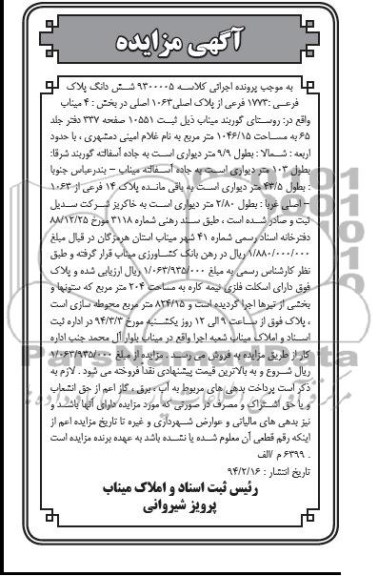 آگهی مزایده
به موجب پرونده اجرائی کلاسه ۹۳۰۰۰۰۵ شش دانگ پلاک
فرعـی :۱۷۷۳ فرعی از پلاک اصلی۱۰۶۳ اصلی در بخش : ۴ میناب
واقع در: روستای گوربند میناب ذیل ثبت ۱۰۵۵۱ صفحه ۳۳۷ دفتر جلد
۶۵ به مساحت ۱۰۴۶/۱۵ متر مربع به نام غلام امینی دمشهری ، با حدود
اربعه : شمالا : بطول ۹/۹ متر دیواری است به جاده آسفالته گوربند شرقا:
بطول ۱۰۳ متر دیواری است به جاده آسفالته میناب – بندرعباس جنوبا
: بطول ۴۳/۵ متر دیواری است به باقی مانده پلاک ۱۴ فرعی از ۱۰۶۳
– اصلی غربا : بطول ۲/۸۰ متر دیواری است به خاکریز شرکت سدیل
ثبت و صادر شده است ، طبق سند رهنی شماره ۳۱۱۸ مورخ ۸۸/۱۲/۲۵
دفترخانه اسناد رسمی شماره ۴۱ شهر میناب استان هرمزگان در قبال مبلغ
۱/۸۸۰/۰۰۰/۰۰۰ ریال در رهن بانک کشاورزی میناب قرار گرفته و طبق
نظر کارشناس رسمی به مبلغ ۱/۰۶۳/۹۳۵/۰۰۰ ریال ارزیابی شده و پلاک
فوق دارای اسکلت فلزی نیمه کاره به مساحت ۲۰۴ متر مربع که ستونها و
بخشی از تیرها اجرا گردیده است و ۸۲۴/۱۵ متر مربع محوطه سازی است
، پلاک فوق از ساعت ۹ الی ۱۲ روز یکشنبه مورخ ۹۴/۳/۳ در اداره ثبت
اسناد و املاک میناب شعبه اجرا واقع در میناب بلوار آل محمد جنب اداره
کار از طریق مزایده به فروش می رسد . مزایده از مبلغ ۱/۰۶۳/۹۳۵/۰۰۰
ریال شروع و به بالاترین قیمت پیشنهادی نقدا فروخته می شود . لازم به
ذکر است پرداخت بدهی های مربوط به آب ، برق ، گاز اعم از حق انشعاب
و یا حق اشتراک و مصرف در صورتی که مورد مزایده دارای آنها باشد و
نیز بدهی های مالیاتی و عوارض شهرداری و غیره تا تاریخ مزایده اعم از
اینکه رقم قطعی آن معلوم شده یا نشده باشد به عهده برنده مزایده است
. ۶۳۹۹ م /الف
تاریخ انتشار : ۹۴/۲/۱۶
رئیس ثبت اسناد و املاک میناب
پرویز شیروانی